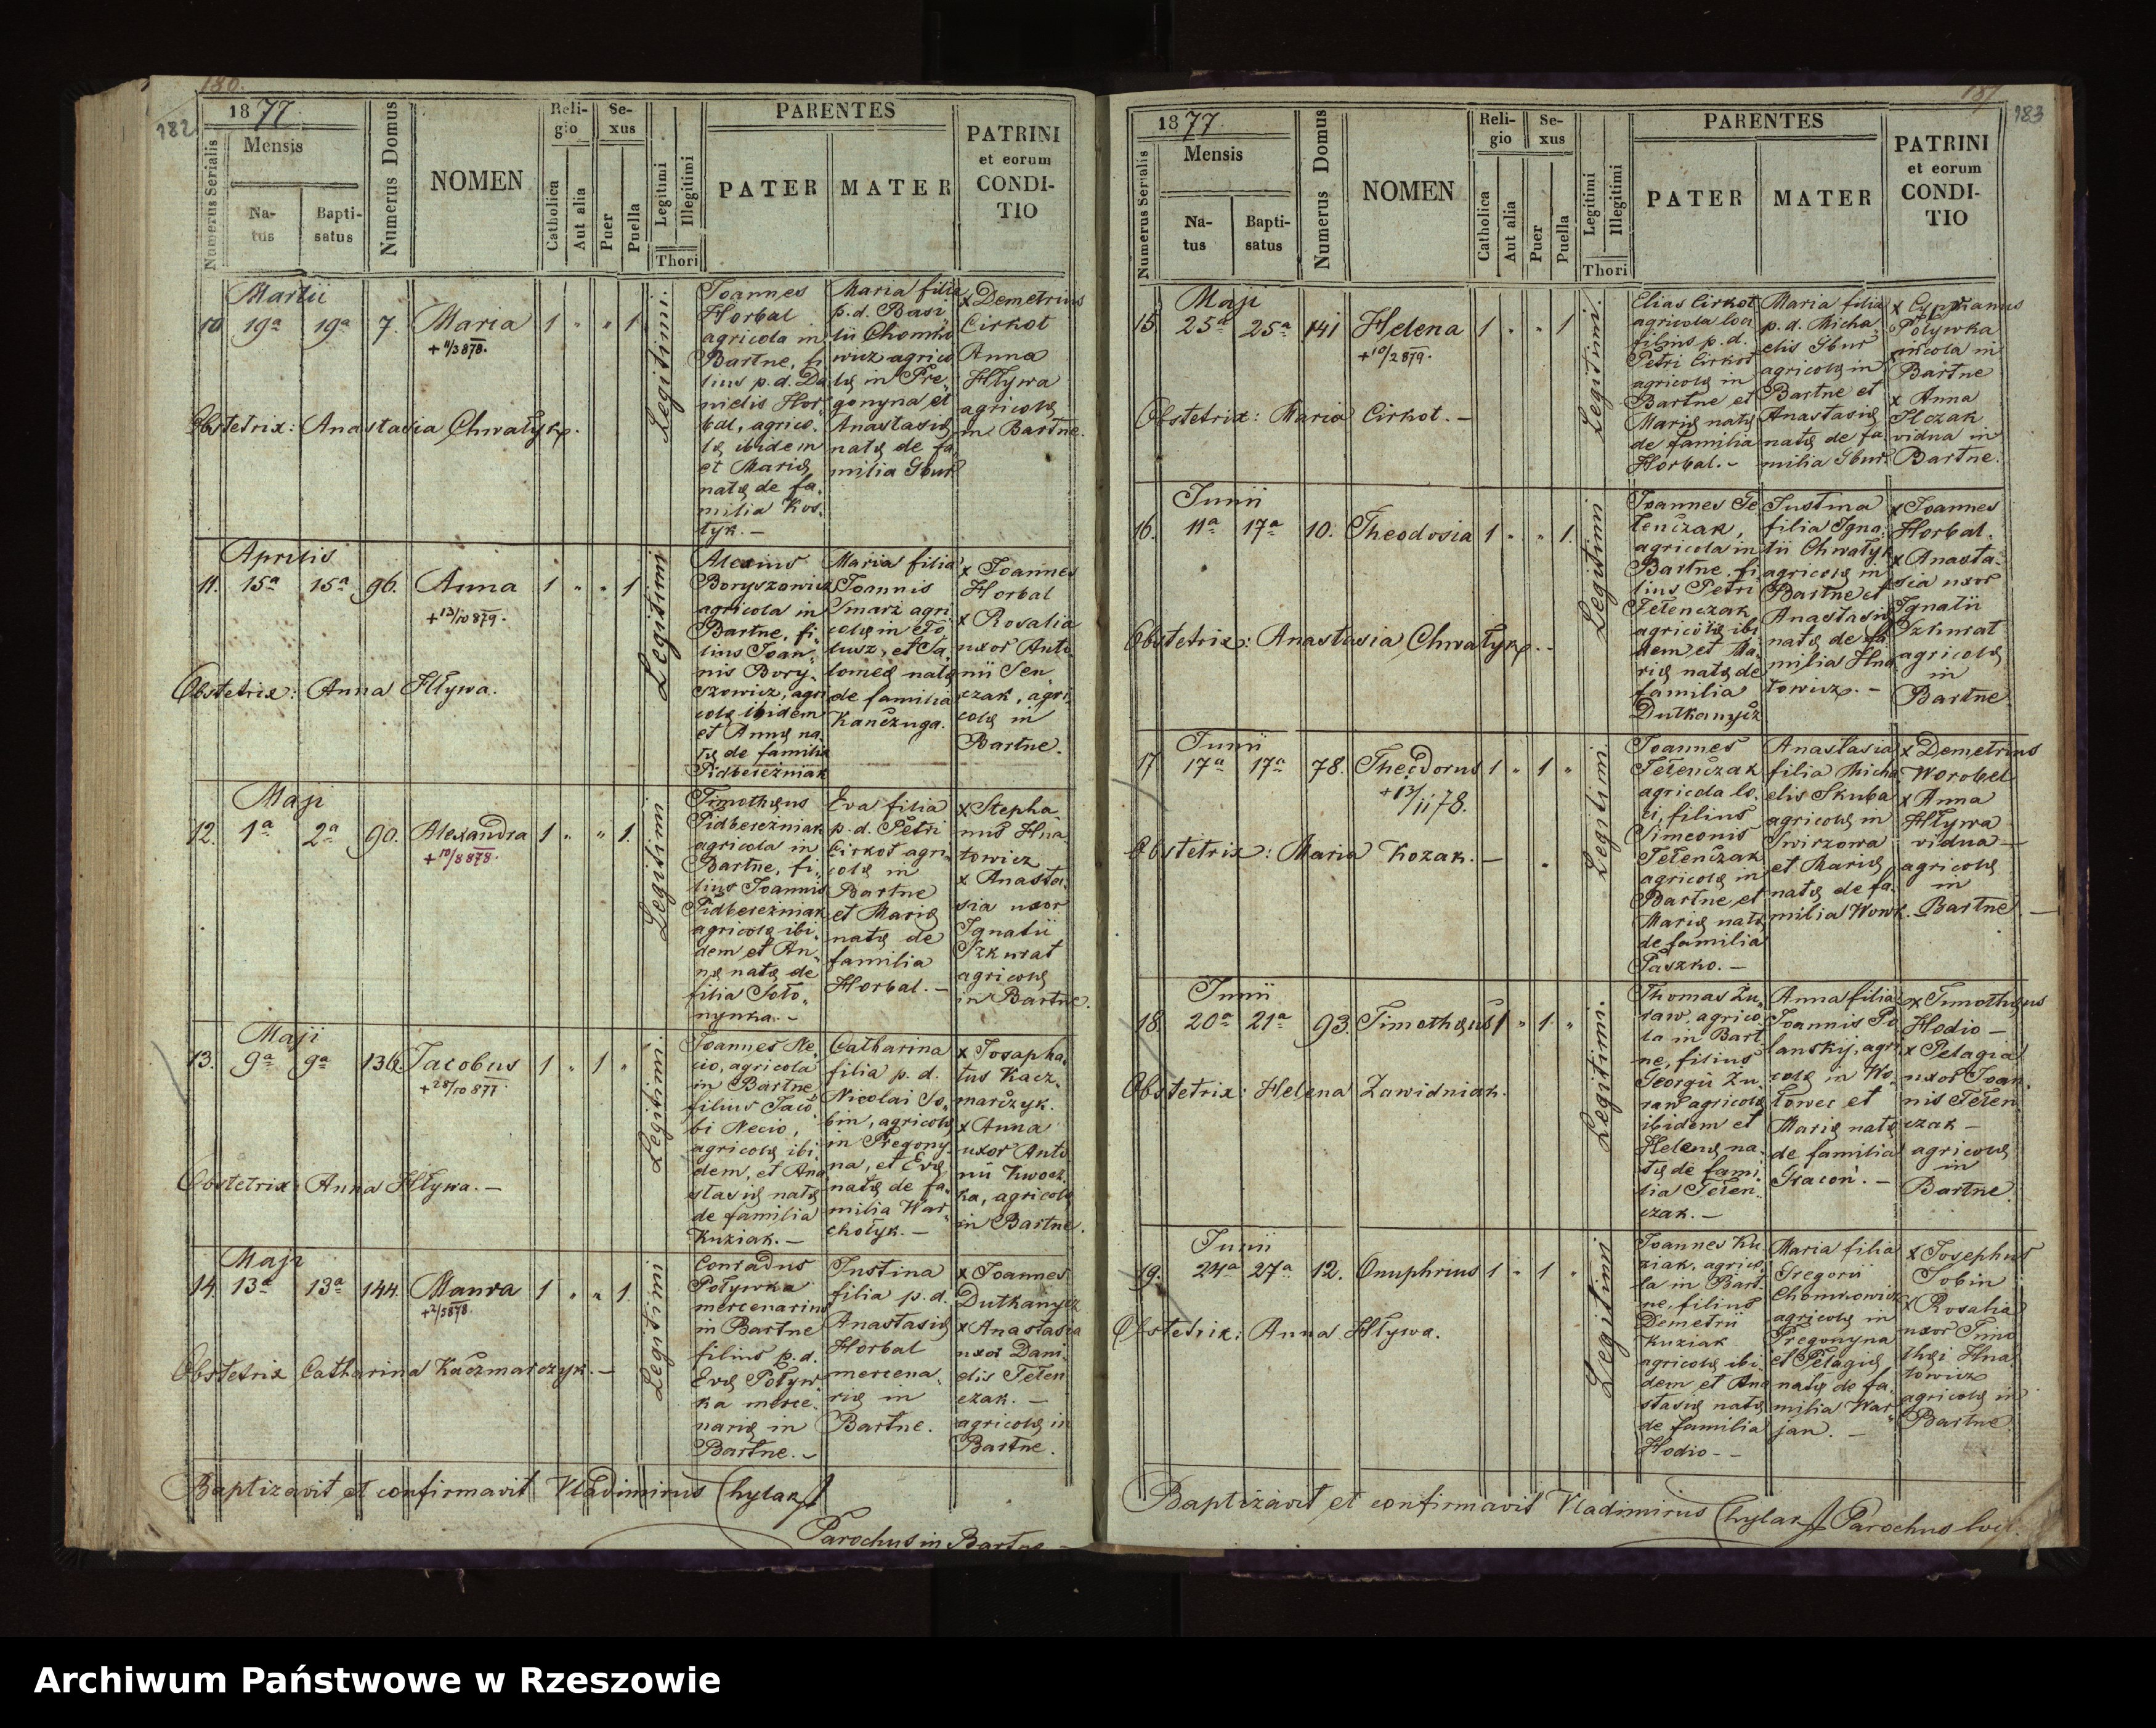 180.
182
1877.
Numerus Serialis
Mensis
Natus
Baptisatus
Numerus Domus
NOMEN
Religio
Catholica
Aut alia
Sexus
Puer
Puella
Legitimi
Illegitimi
Thori
PARENTES
PATER
MATER
PATRINI
et eorum
CONDI-
TIO
Martii
10 19a 19a 7. Maria 1 " " 1
+ 11/3 878.
Legitimi.
Joannes
Horbal
agricola in
Bartne, fi
lius p.d. Da
nielis Hor
bal, agrico.
lę ibidem
et Marię
natę de fa.
milia Kos.
tyk. —
Maria filia
p.d. Basi
lii Chomko
wicz agrico
lę in Pre,
gonyna et
Anastasię
natę de fa,
milia Gbur
x Demetrius
Cirkot
Anna
Hływa
agricolę
in Bartne.
Obstetrix: Anastasia Chwałyk.
Aprilis
11. 15a 15a 96. Anna 1 " " 1
+ 13/10 879.
Legitimi
Alexius
Boryszowicz
agricola in
Bartne, fi,
lius Joan,
nis Bory,
szowicz, agri
colę ibidem
et Annę na.
tę de familia
Pidbereżniak
Maria filia
Joannis
Smarz agri
colę in Fo
lusz, et Sa,
lomeę natę
de familia
Kańczuga.
x Joannes
Horbal
x Rosalia
uxor Anto
nii Sen
czak, agri,
colę in
Bartne.
Obstetrix: Anna Hływa.
Maji
12. 1a 2a 90. Alexandra 1 " " 1.
+ 10/8 878.
Legitimi
Timothęus
Pidbereżniak
agricola in
Bartne, fi,
lius Joannis
Pidbereżniak
agricolę ibi,
dem et An,
nę natę de
filia Soło,
nynka. —
Eva filia
p.d. Petri
Cirkot agri,
colę in
Bartne
et Marię
natę de
familia
Horbal. —
x Stepha,
nus Hna
towicz
x Anasta,
sia uxor
Ignatii
Szkurat
agricolę
in Bartne.
Maji
13. 9a 9a 136 Jacobus 1 " 1 "
+ 28/10 877.
Legitimi.
Joannes Ne,
cio, agricola
in Bartne
filius Jaco
bi Necio,
agricolę ibi,
dem, et Ana
stasię natę
de familia
Kuziak. —
Catharina
filia p.d.
Nicolai So,
bin, agricolę
in Pregony,
na, et Evę
natę de fa,
milia War,
chołyk. —
x Josapha,
tus Kacz,
marczyk.
x Anna
uxor Anto
nii Kwocz,
ka, agricolę
in Bartne.
Obstetrix: Anna Hływa. —
Maji
14. 13a 13a 144. Maura 1 " " 1.
+ 2/5 878.
Legitimi
Conradus
Poływka
mercenarius
in Bartne
filius p.d.
Evę Poływ,
ka merce,
narię in
Bartne. —
Justina
filia p.d.
Anastasię
Horbal
mercena,
rię in
Bartne.
x Joannes
Dutkanycz
x Anastasia
uxor Dani,
elis Tełen
czak. —
agricolę in
Bartne.
Obstetrix Catharina Kaczmarczyk. —
Baptizavit et confirmavit Vladimirus Chylak
Parochus in Bartne
181
183
1877.
Numerus Serialis
Mensis
Natus
Baptisatus
Numerus Domus
NOMEN
Religio
Catholica
Aut alia
Sexus
Puer
Puella
Legitimi
Illegitimi
Thori
PARENTES
PATER
MATER
PATRINI
et eorum
CONDI-
TIO
Maji
15 25a 25a 141 Helena 1 " " 1
+ 10/2 879.
Legitimi.
Elias Cirkot
agricola loci
filius p.d.
Petri Cirkot
agricolę in
Bartne et
Marię natę
de familia
Horbal. —
Maria filia
p.d. Micha,
elis Gbur
agricolę in
Bartne et
Anastasię
natę de fa,
milia Gbur.
x Cyprianus
Poływka
agricola in
Bartne
x Anna
Hczak
vidua in
Bartne.
Obstetrix: Maria Cirkot. —
Junii
16. 11a 17a 10. Theodosia 1 " " 1.
Legitimi
Joannes Te
lenczak,
agricola in
Bartne, fi,
lius Petri
Tełenczak
agricolę ibi
dem et Ma,
rię natę de
familia
Dutkanycz
Justina
filia Igna,
tii Chwałyk
agricolę in
Bartne et
Anastasię
natę de fa
milia Hna
towicz. —
x Joannes
Horbal.
x Anasta,
sia uxor
Ignatii
Szkurat
agricolę
in
Bartne
Obstetrix: Anastasia Chwałyk. —
Junii
17 17a 17a 78. Theodorus 1 " 1 "
+ 13/11 78.
Legitimi
Joannes
Tełenczak
agricola lo,
ci, filius
Simeonis
Tełenczak
agricolę in
Bartne et
Marię natę
de familia
Paszko. —
Anastasia
filia Micha
elis Skuba
agricolę in
Swirzowa
et Marię
natę de fa,
milia Wowk. —
x Demetrius
Worobel
x Anna
Hływa
vidua —
agricolę
in
Bartne. —
Obstetrix: Maria Kozak. —
Junii
18. 20a 21a 93. Timothęus 1 " 1 "
Legitimi.
Thomas Żu,
raw, agrico,
la in Bart
ne, filius
Georgii Żu,
raw agricolę
ibidem et
Helenę na,
tę de fami,
lia Tełen,
czak. —
Anna filia
Joannis Po
lanskij, agri,
colę in Wo,
łowec et
Marię natę
de familia
Gracoń. —
x Timothęus
Hodio —
x Pelagia
uxor Joan,
nis Tełen
czak —
agricolę
in
Bartne.
Obstetrix: Helena Zawidniak.
Junii
19. 24a 27a 12. Onuphrius 1 " 1 "
Legitimi
Joannes Ku
ziak, agrico,
la in Bart,
ne, filius
Demetrii
Kuziak
agricolę ibi
dem et Ana
stasię natę
de familia
Hodio —
Maria filia
Gregorii
Chomkowicz
agricolę in
Pregonyna
et Pelagię
natę de fa,
milia War
jan. —
x Josephus
Sobin
x Rosalia
uxor Timo
thęi Hna,
towicz
agricolę in
Bartne
Obstetrix: Anna Hływa.
Baptizavit et confirmavit Vladimirus Chylak Parochus loci.
Archiwum Państwowe w Rzeszowie